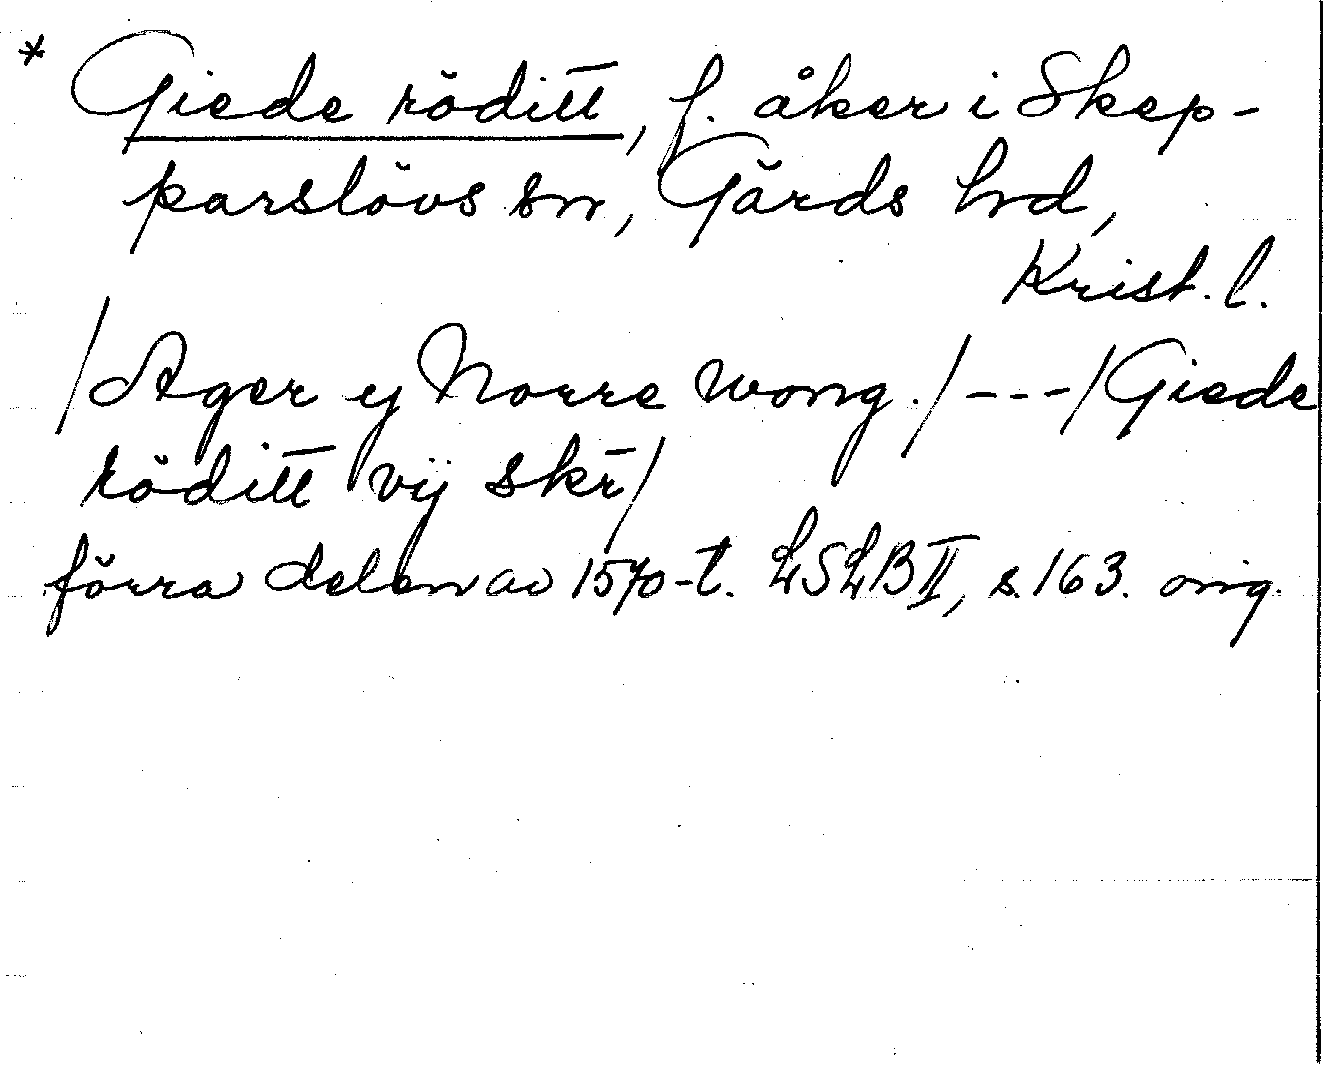 * Giede röditt, f. åker i Skep-
parslövs sn, Gärds hd,
Krist. l.
/Ager y Norre wong./---/Giede
röditt vij skr̄/
förra delen av 1570-t. LSLB II, s. 163. orig.